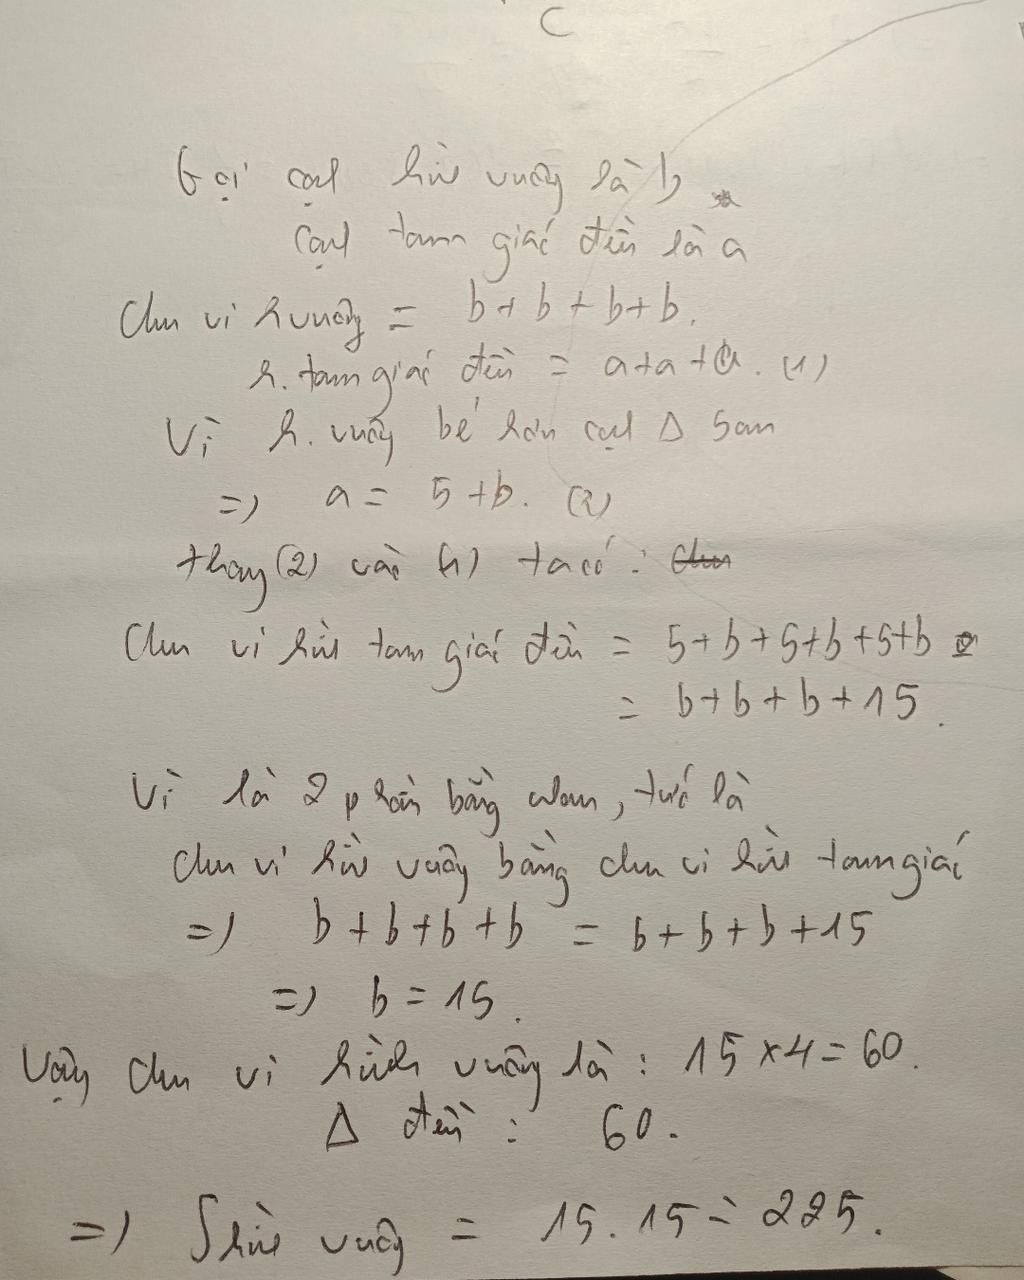 C
Gọi cạnh hình vuông là b
cạnh tam giác đều là a
Chu vi h vuông = b + b + b + b.
h. tam giác đều = a + a + a. (1)
Vì h. vuông bé hơn cạnh Δ 5cm
=> a = 5 + b. (2)
thay (2) vào (1) ta có :
Chu vi hình tam giác đều = 5 + b + 5 + b + 5 + b
= b + b + b + 15.
Vì là 2 phần bằng nhau, tức là
chu vi hình vuông bằng chu vi hình tam giác
=> b + b + b + b = b + b + b + 15
=> b = 15.
Vậy chu vi hình vuông là : 15 x 4 = 60.
Δ đều : 60.
=> S hình vuông = 15 . 15 = 225.